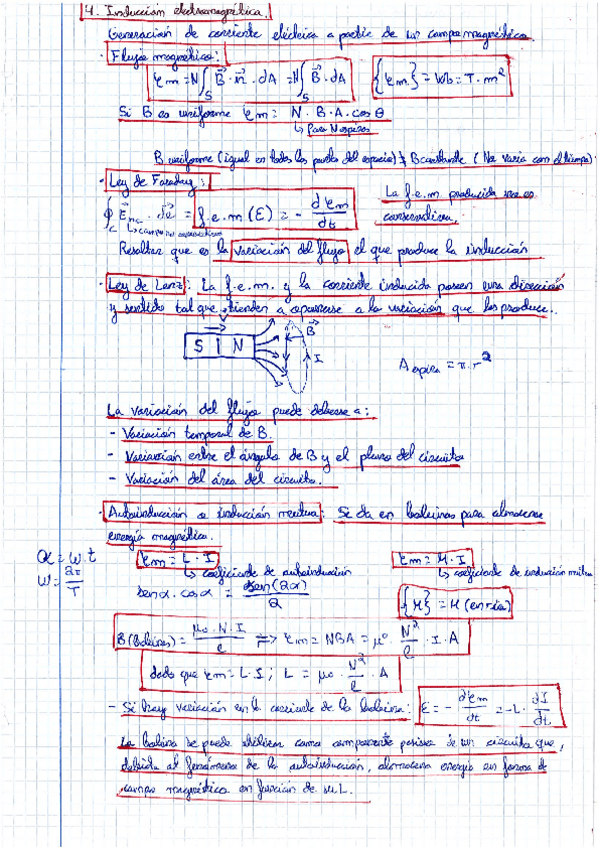 4. Inducción electromagnética.
Generación de corriente eléctrica a partir de un campo magnético
· Flujo magnético:
φm = N ∫S B⃗ · n⃗ · dA = N ∫S B⃗ · dA {φm} = Wb = T · m²
Si B es uniforme φm = N · B · A · cos θ
↳ Para N espiras
B uniforme (igual en todos los puntos del espacio) ≠ B constante (No varía con el tiempo)
· Ley de Faraday:
∮C E⃗nc · dl⃗ = f.e.m (ε) = - dφm/dt La f.e.m producida no es
↳ campo no conservativo conservativa.
Resaltar que es la variación del flujo el que produce la inducción
· Ley de Lenz: La f.e.m. y la corriente inducida poseen una dirección
y sentido tal que tienden a oponerse a la variación que los produce.
S N B⃗ I
A espira = π · r²
La variación del flujo puede deberse a:
- Variación temporal de B.
- Variación entre el ángulo de B y el plano del circuito
- Variación del área del circuito.
· Autoinducción o inducción mutua: Se da en bobinas para almacenar
energía magnética.
α = ω · t φm = L · I φm = M · I
↳ coeficiente de autoinducción ↳ coeficiente de inducción mutua
ω = 2π/T sen α · cos α = sen(2α)/2
{M} = H (enrio)
B (Bobinas) = μ₀ · N · I / l ⇒ φm = NBA = μ₀ N²/l · I · A
dado que φm = L · I ; L = μ₀ · N²/l · A
- Si hay variación en la corriente de la bobina: ε = - dφm/dt = -L · dI/dt
La bobina se puede utilizar como componente pasivo de un circuito que,
debido al fenómeno de la autoinducción, almacena energía en forma de
campo magnético en función de su L.